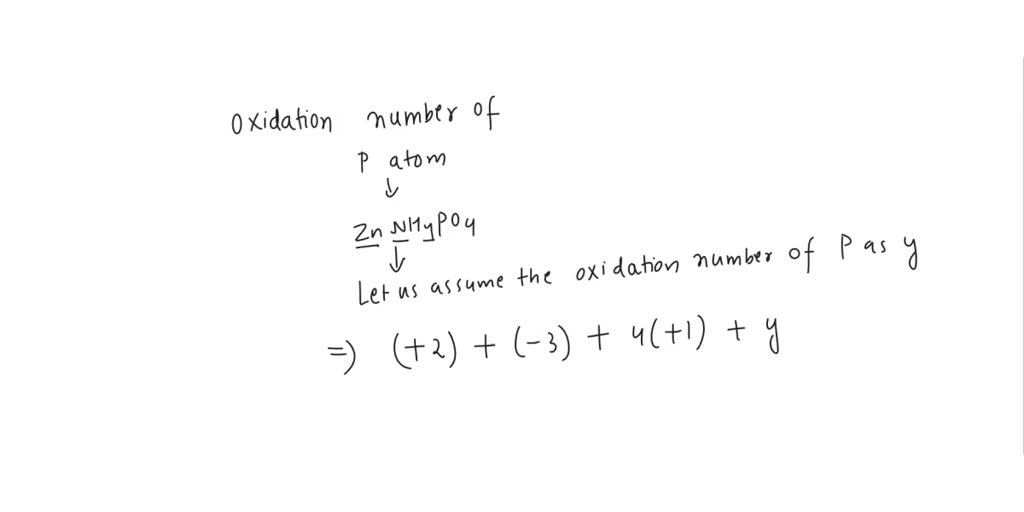 Oxidation number of
P atom
↓
Zn NH4PO4
↓
Let us assume the oxidation number of P as y
=> (+2) + (-3) + 4(+1) + y